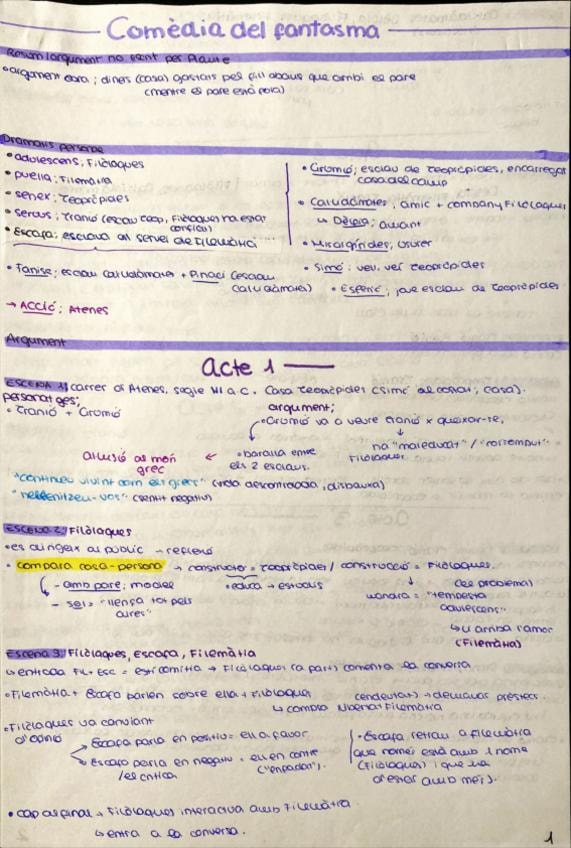 Comèdia del fantasma
Resum/argument no escrit per Plaute
• argument obra: diners (casa) gastats pel fill abans que arribi el pare
(mentre el pare està fora)
Dramatis personae
• adulescens: Filòlaques
• puella: Filemàtia
• senex: Teoròpides
• servus: Tranió (esclau Teop, Filòlaques ha estat
• Escafa: esclava al servei de Filemàtia
• Fanisc: esclau Cal·lidàmates + Pinaci (esclau
Cal·lidàmates)
→ ACCIÓ: Atenes
• Grumió: esclau de Teoròpides, encarregat
casa del camp
• Cal·lidàmates, amic + company Filòlaques
↳ Dèlfia: amant
• Misargírides, usurer
• Simó: vell, veí Teoròpides
• Esferi: jove esclau de Teoròpides
Argument
Acte 1
ESCENA 1: carrer d'Atenes, segle III a.C. Casa Teoròpides (Simó al costat, casa).
personatges:
• Tranió + Grumió
argument:
• Grumió va a veure Tranió x queixar-se,
↓
ha "maleducat" / "corromput"
Filòlaques
• baralla entre
els 2 esclaus.
al·lusió al món
grec
"continueu vivint com els grecs" (vida descontrolada, disbauxa)
"hel·lenitzeu-vos" (sentit negatiu)
ESCENA 2: Filòlaques
• es dirigeix al públic → reflexió
• compara casa-persona → constructor = Teoròpides / construcció = Filòlaques.
- amb pare: model
- sol = "llença tot pels
aires"
• educa → estudis
(els problema)
"tempesta
adulescens"
↳ arriba l'amor
(Filemàtia)
Escena 3: Filòlaques, Escafa, Filemàtia
↳ entrada Fil + Esc = → Filòlaques (a part) comenta la conversa
• Filemàtia + Escafa parlen sobre ella + Filòlaques
(endeutat) → demanar préstec.
↳ compra llibertat Filemàtia
• Filòlaques va canviant
d'opinió
→ Escafa parla en positiu = ell a favor
→ Escafa parla en negatiu = ell en contra
/el critica
("enfadat").
• Escafa retreu a Filemàtia
que només està amb 1 home
(Filòlaques) i que ha
d'estar amb més).
• cap al final → Filòlaques interactua amb Filemàtia
↳ entra a la conversa.
1